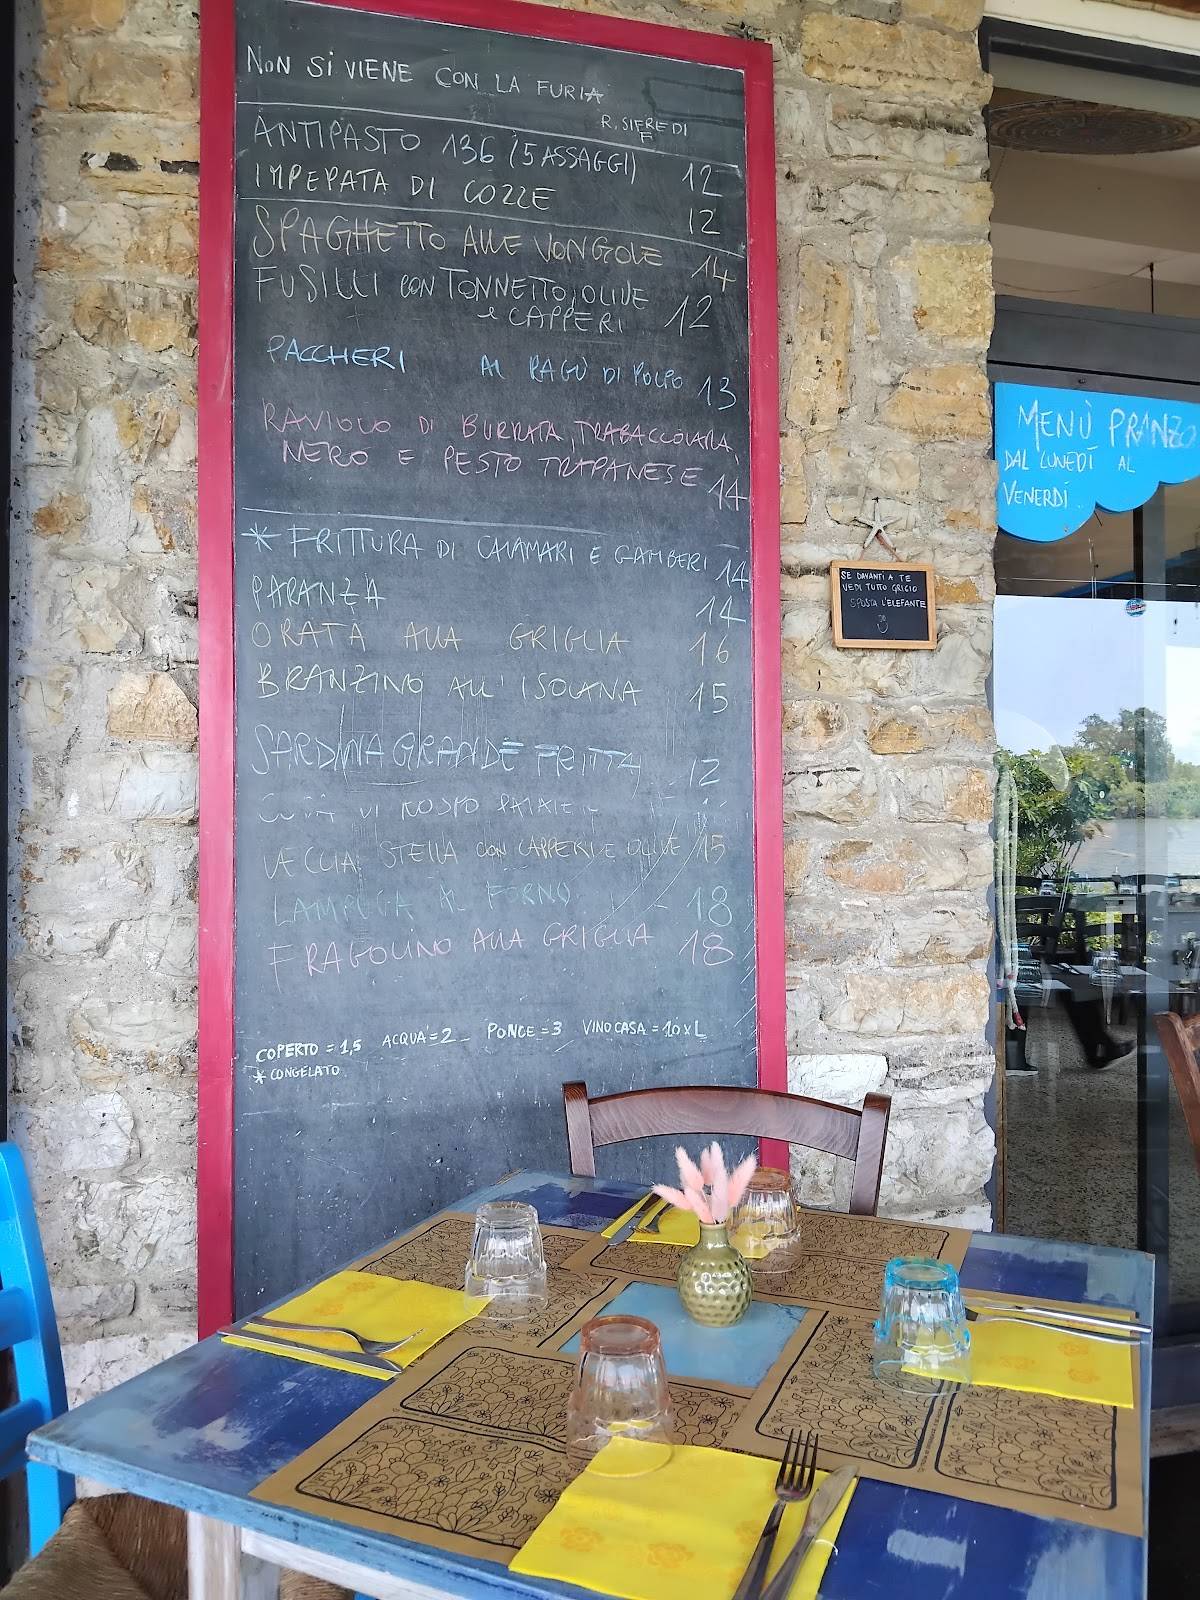 NON SI VIENE CON LA FURIA
R. SIFREDI
F
ANTIPASTO 136 (5 ASSAGGI) 12
IMPEPATA DI COZZE 12
SPAGHETTO ALLE VONGOLE 14
FUSILLI CON TONNETTO, OLIVE
e CAPPERI 12
PACCHERI AL RAGÙ DI POLPO 13
RAVIOLO DI BURRATA, TRABACCOLARA,
NERO E PESTO TRAPANESE 14
* FRITTURA DI CALAMARI E GAMBERI 14
PARANZA 14
ORATA ALLA GRIGLIA 16
BRANZINO ALL'ISOLANA 15
SARDINA GRANDE FRITTA 12
VECCIA STELLA CON CAPPERI E OLIVE 15
LAMPUGA AL FORNO 18
FRAGOLINO ALLA GRIGLIA 18
COPERTO = 1,5 ACQUA = 2 PONCE = 3 VINO CASA = 10 x L
* CONGELATO
MENÙ PRANZO
DAL LUNEDÌ AL
VENERDÌ
SE DAVANTI A TE
VEDI TUTTO GRIGIO
SPOSTA L'ELEFANTE